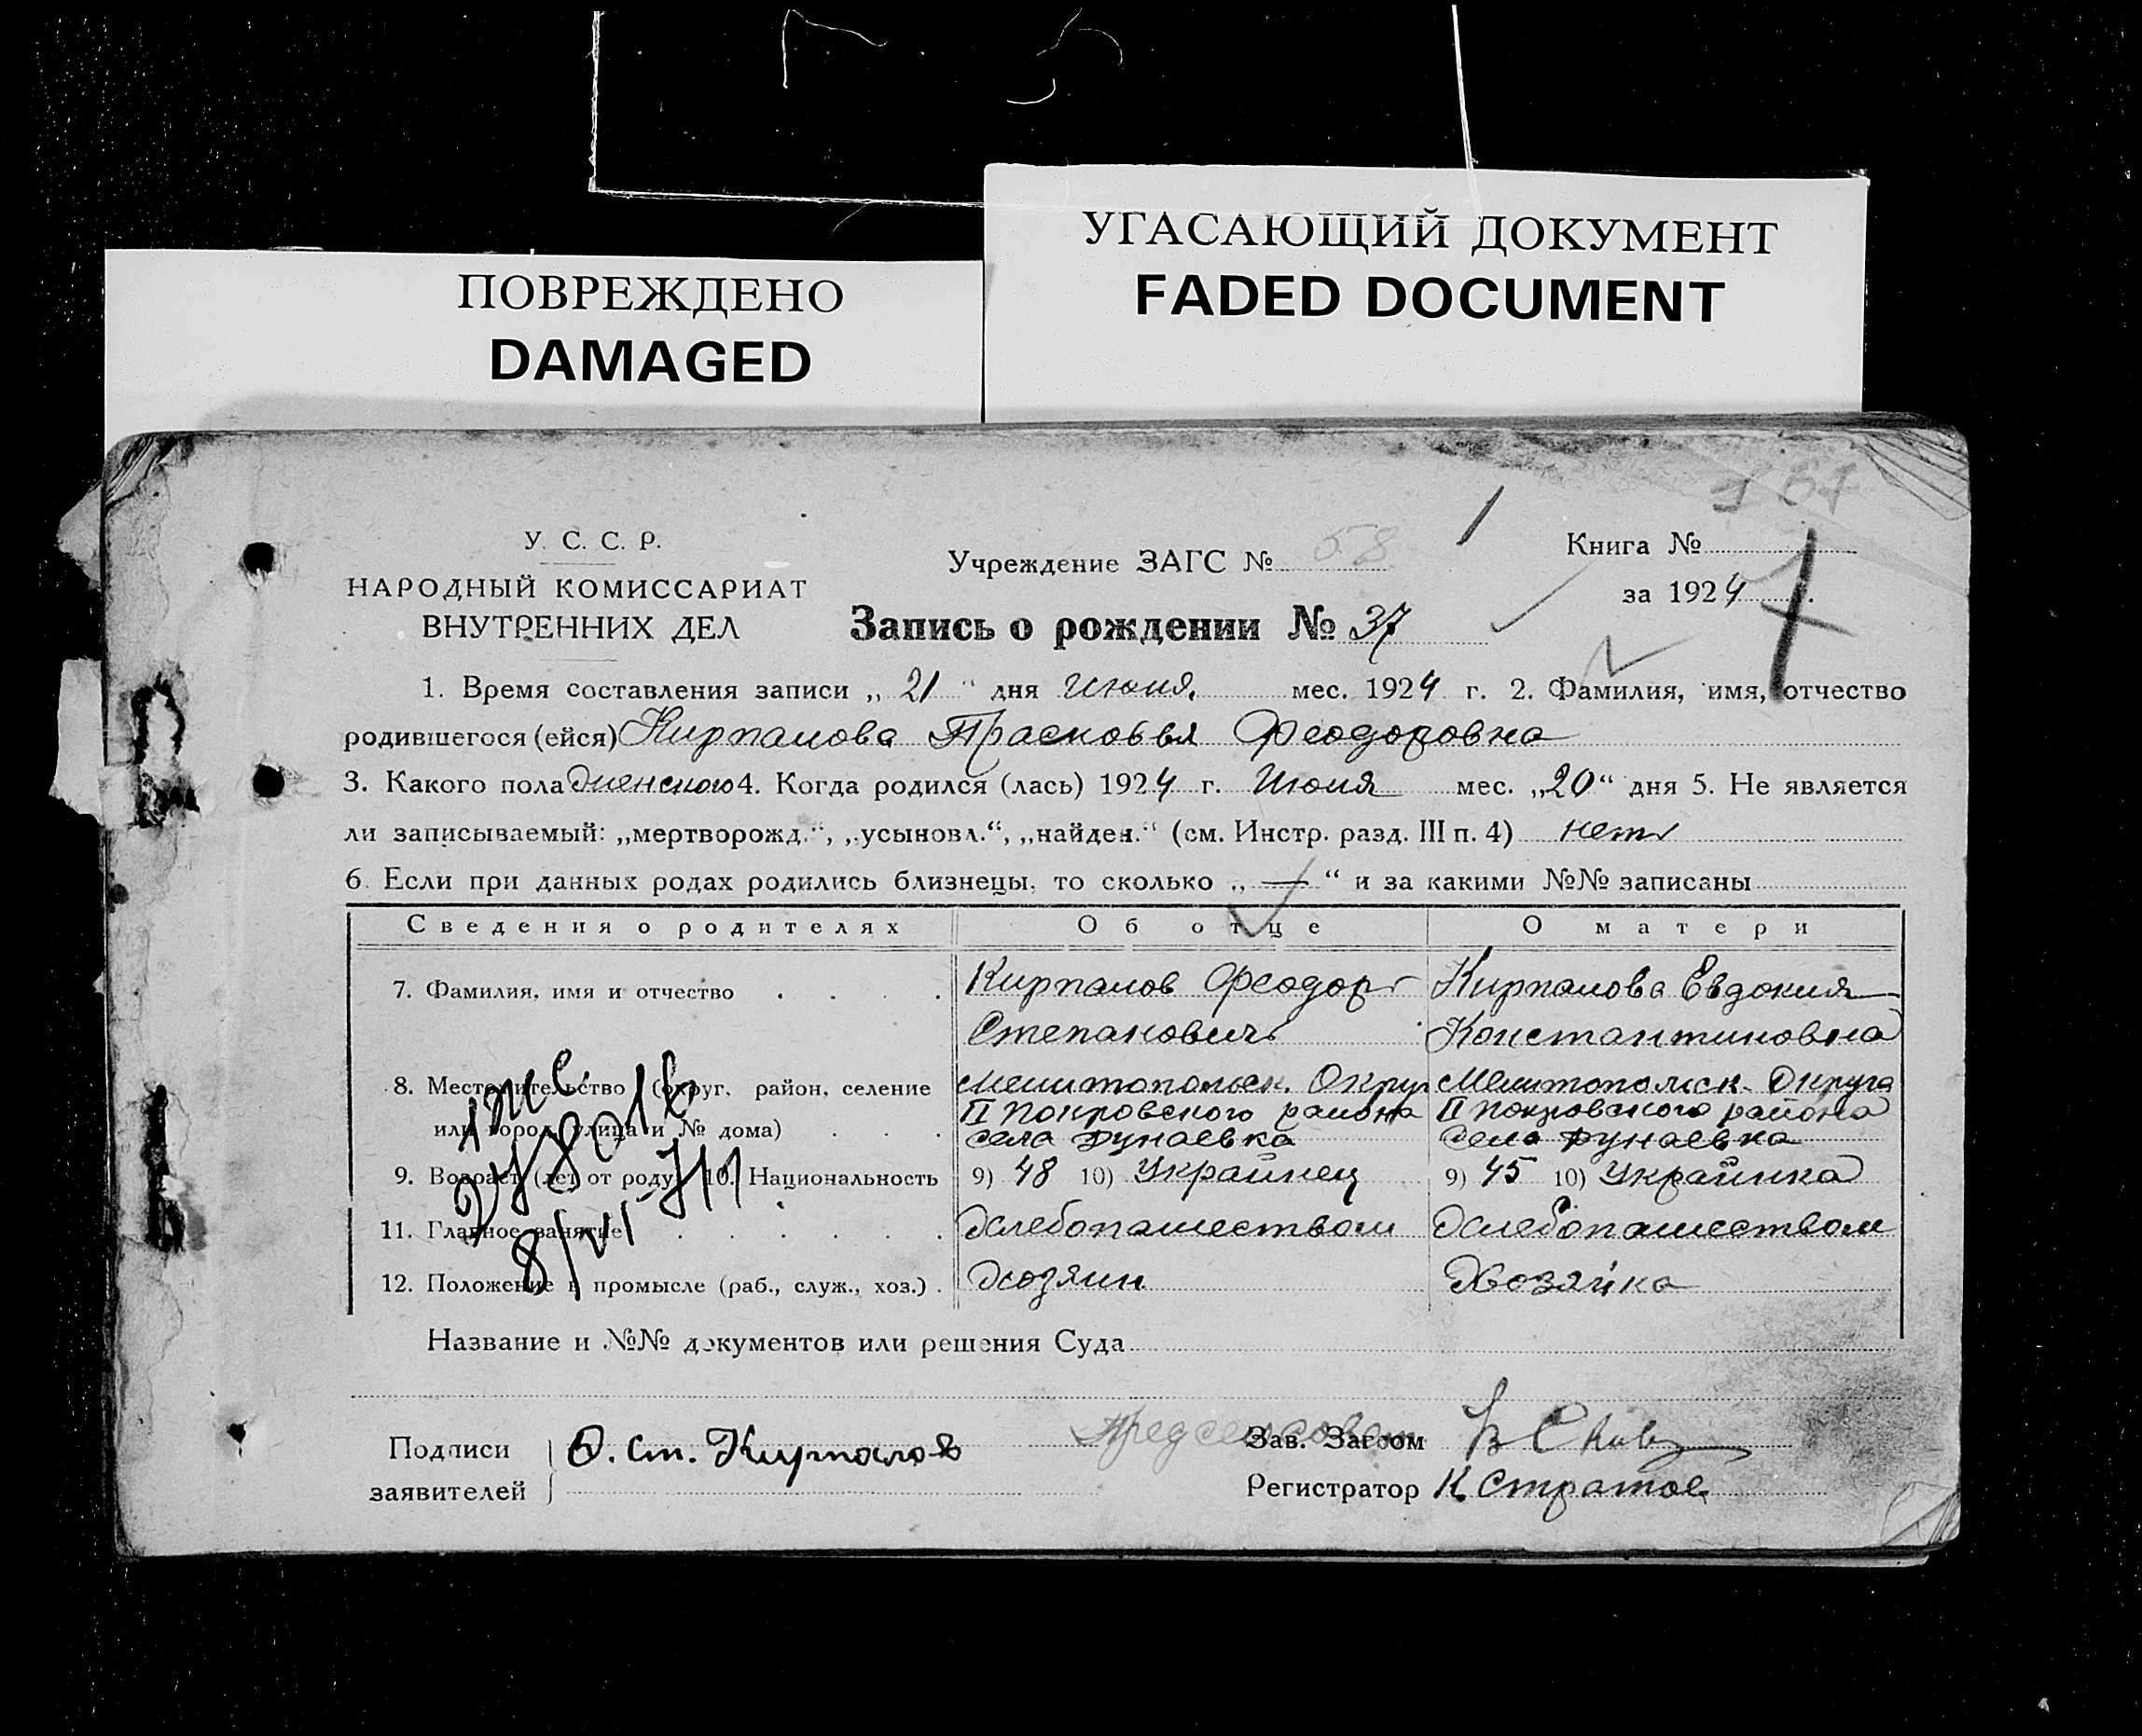 УГАСАЮЩИЙ ДОКУМЕНТ
FADED DOCUMENT
ПОВРЕЖДЕНО
DAMAGED
У. С. С. Р.
НАРОДНЫЙ КОМИССАРИАТ
ВНУТРЕННИХ ДЕЛ
Учреждение ЗАГС № 58
Книга №
за 1924
Запись о рождении № 37
1. Время составления записи „ 21 “ дня Июня, мес. 1924 г. 2. Фамилия, имя, отчество
родившегося (ейся) Кирпалова Прасковья Феодоровна
3. Какого пола Женского 4. Когда родился (лась) 1924 г. Июня мес. „20“ дня 5. Не является
ли записываемый: „мертворожд.“, „усыновл.“, „найден.“ (см. Инстр. разд. III п. 4) нетъ
6. Если при данных родах родились близнецы, то сколько „ — “ и за какими №№ записаны
Сведения о родителях Об отце О матери
7. Фамилия, имя и отчество . . . . Кирпалов Феодор Кирпалова Евдокия
Степановичъ Константиновна
8. Местожительство (округ, район, селение Мелитопольск. Округ Мелитопольск. Округа
II Покровского района II Покровского района
или город, улица и № дома) . . . села Дунаевка села Дунаевка
9. Возраст (лет от роду) 10. Национальность 9) 48 10) Украинец 9) 45 10) Украинка
11. Главное занятие . . . . . . Хлебопашеством Хлебопашеством
12. Положение в промысле (раб., служ., хоз.) . Хозяин Хозяйка
8/VI
Название и №№ документов или решения Суда
Подписи
заявителей
Ф. Ст. Кирпалов
Предсельсовет
Зав. Загсом
Регистратор К Стратов